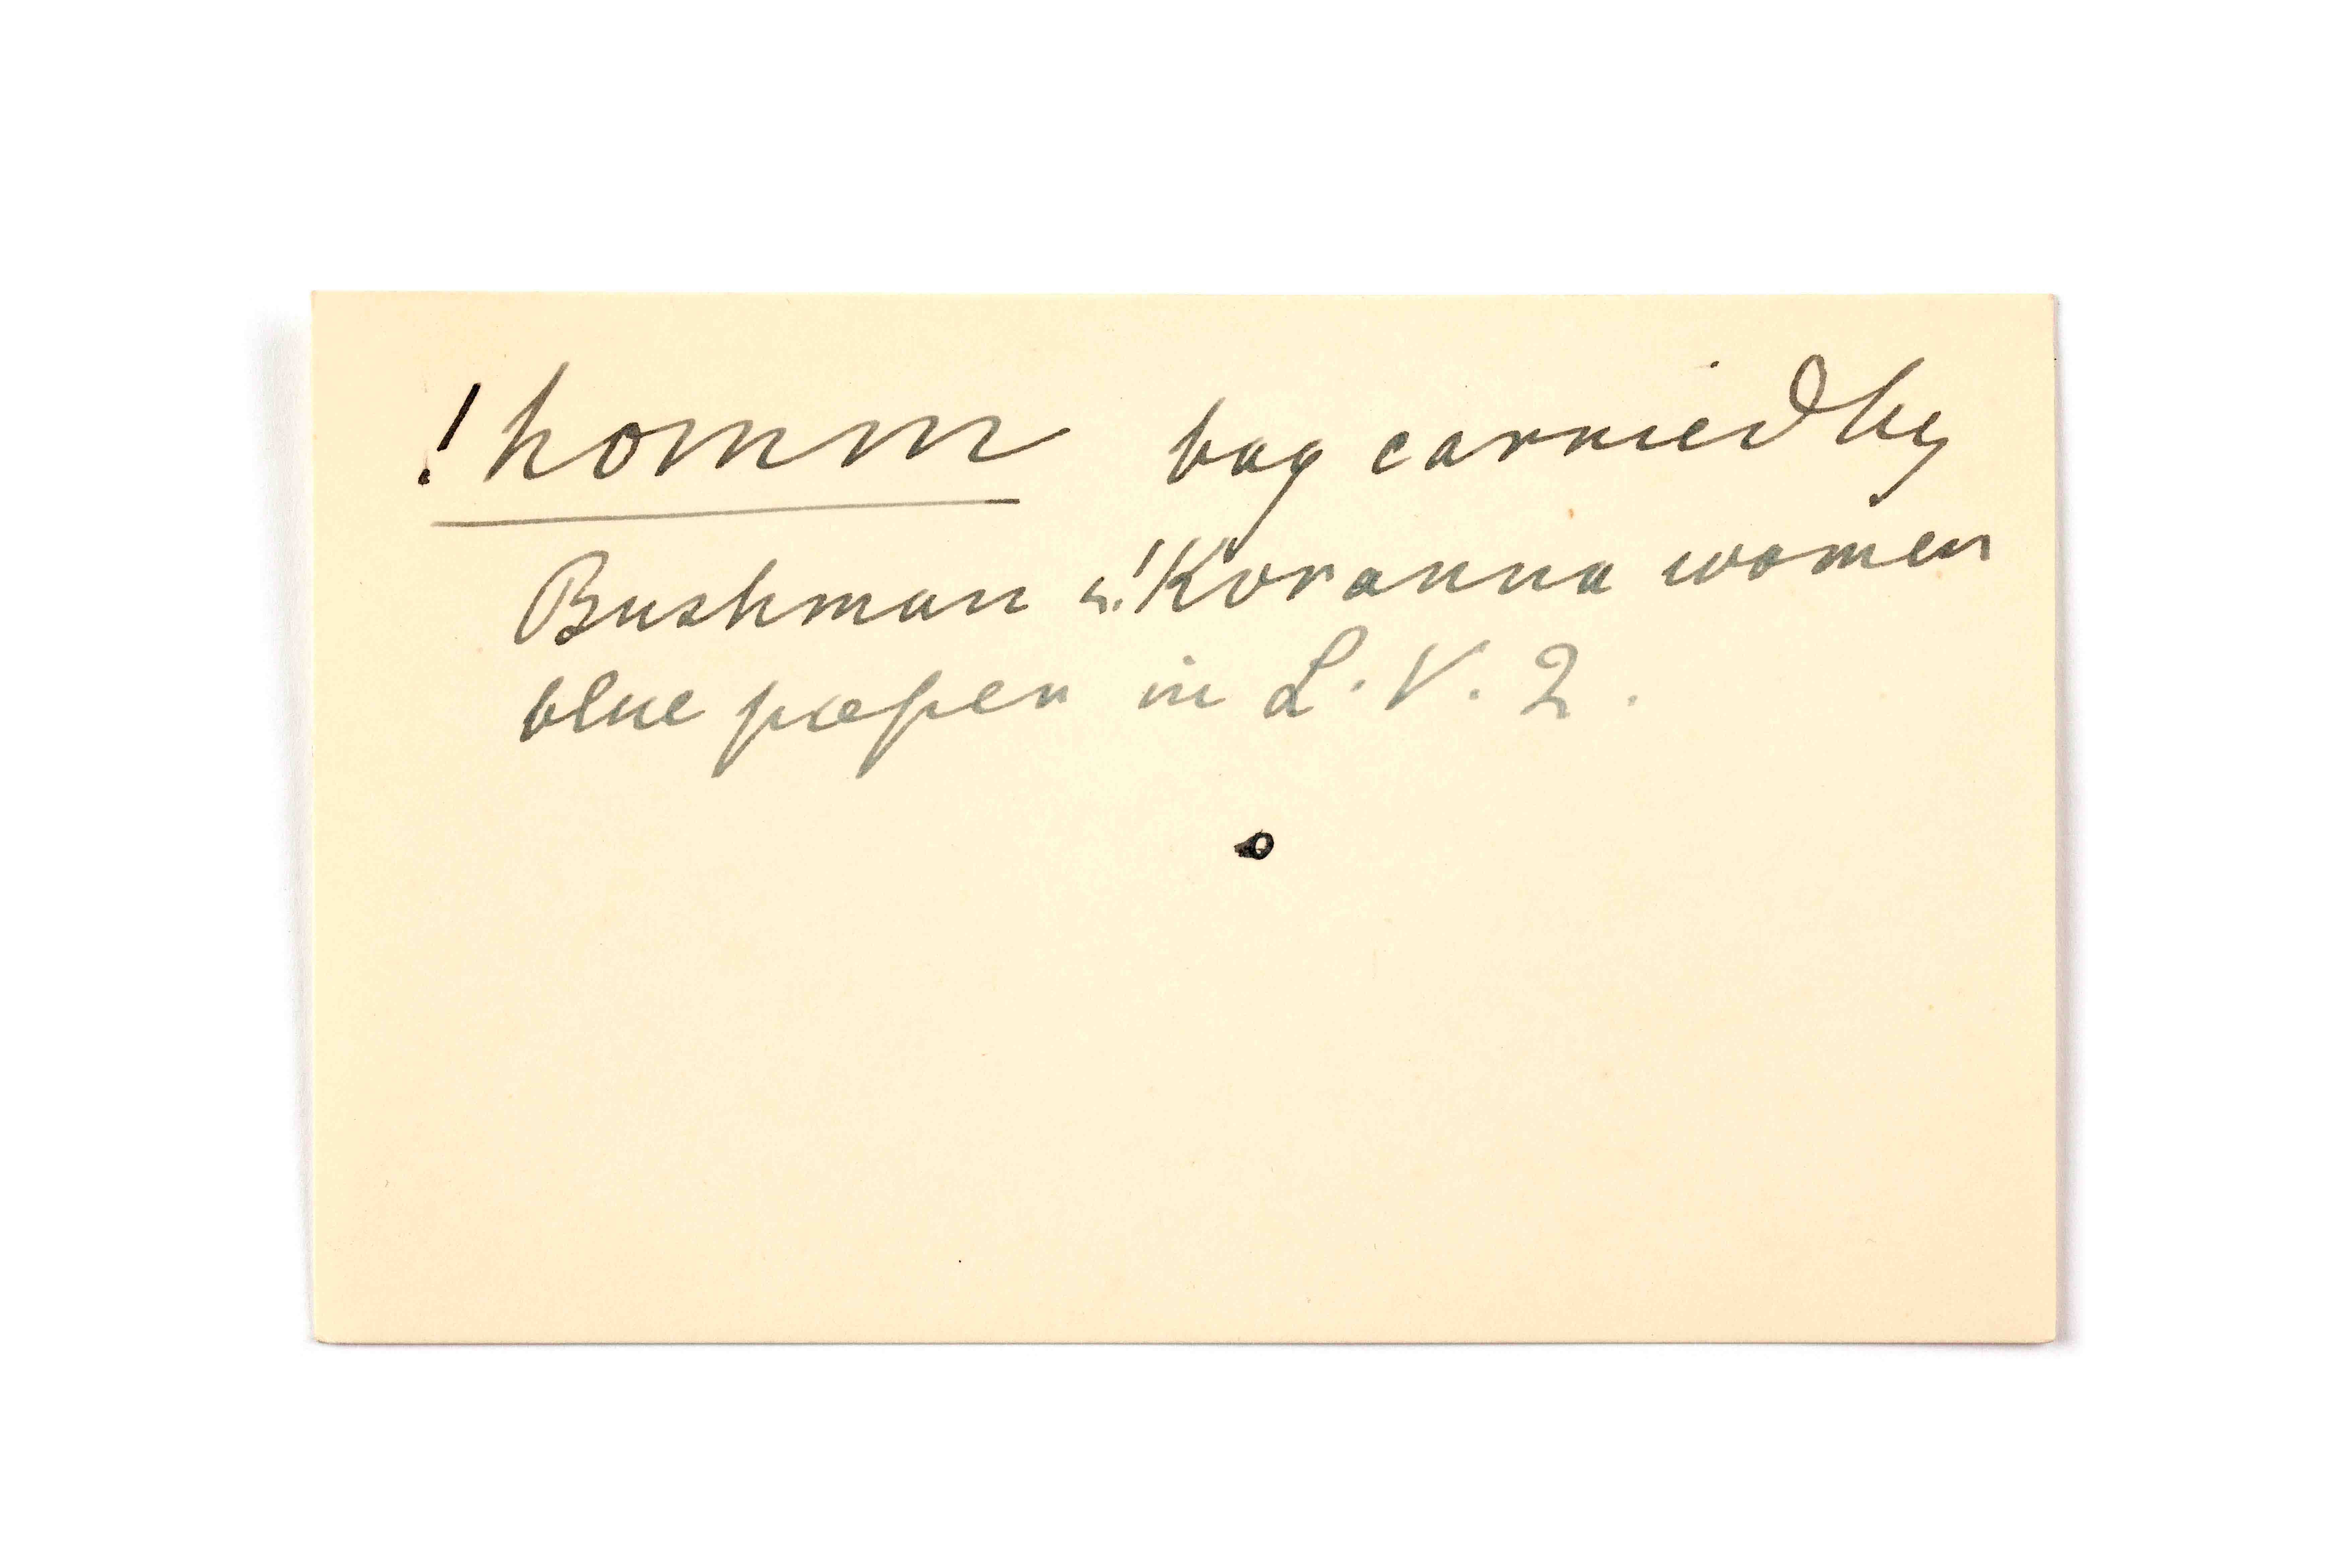 !homm bag carried by
Bushman & !Koranna women
blue paper in L. V. 2.